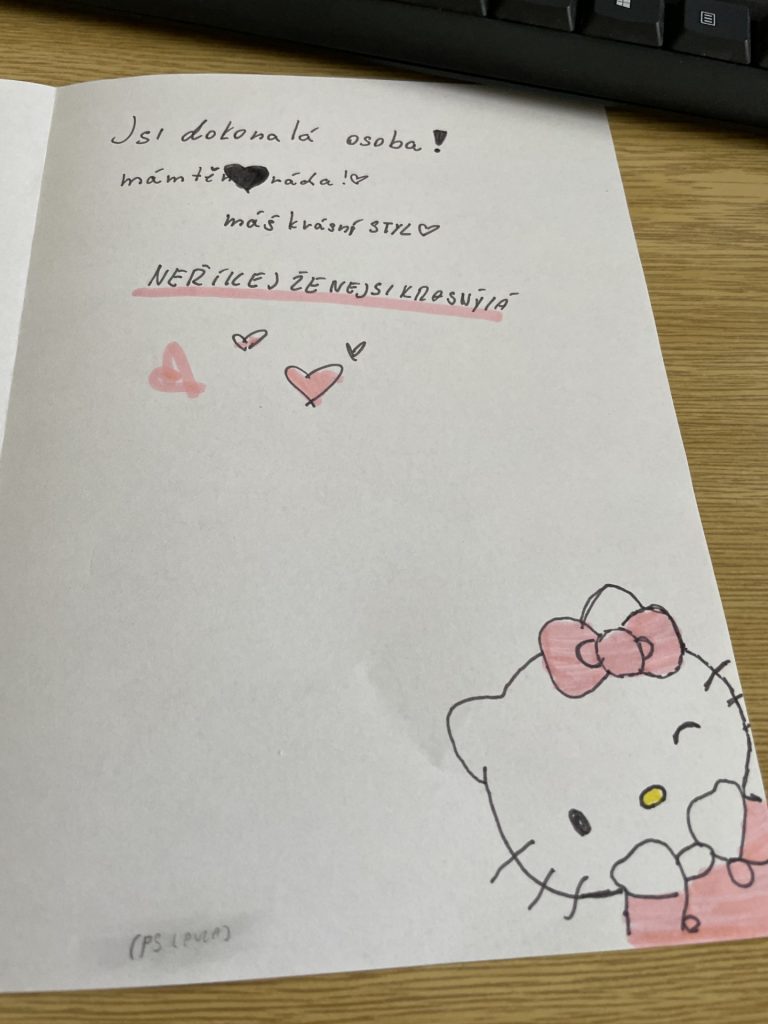 Jsi dokonalá osoba!
mám tě ráda!
máš krásní STYL
NEŘÍKEJ ŽE NEJSI KRASNÝ/Á
(PS